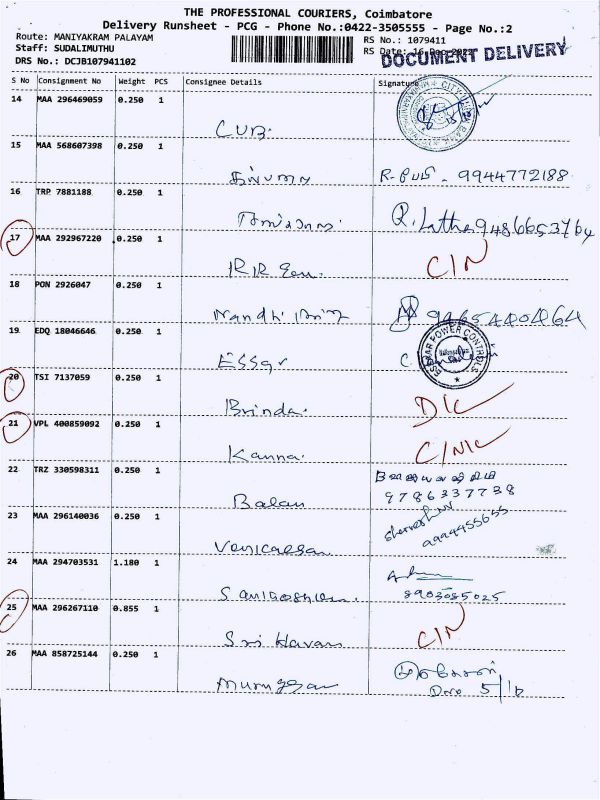 THE PROFESSIONAL COURIERS, Coimbatore
Delivery Runsheet - PCG - Phone No.:0422-3505555 - Page No.:2
Route: MANIYAKRAM PALAYAM
RS No.: 1079411
Staff: SUDALIMUTHU
RS Date: 16 Dec 2022
DOCUMENT DELIVERY
DRS No.: DCJB107941102
S No Consignment No Weight PCS Consignee Details Signature
14 MAA 296469059 0.250 1
CUB.
15 MAA 568607398 0.250 1
9944772188
16 TRP 7881188 0.250 1
R. Latha 9486653764
17 MAA 292967220 0.250 1
RR
C/N
18 PON 2926047 0.250 1
Nandhi
19 EDQ 18046646 0.250 1
ESSAR POWER CONTROLS
20 TSI 7137059 0.250 1
Brinda. D/C
21 VPL 400859092 0.250 1
Kanna.
22 TRZ 330598311 0.250 1
Balan 9786337738
23 MAA 296140036 0.250 1
9994455655
24 MAA 294703531 1.180 1
8903085025
25 MAA 296267110 0.855 1
Sri Havan C/N
26 MAA 858725144 0.250 1
Murugan